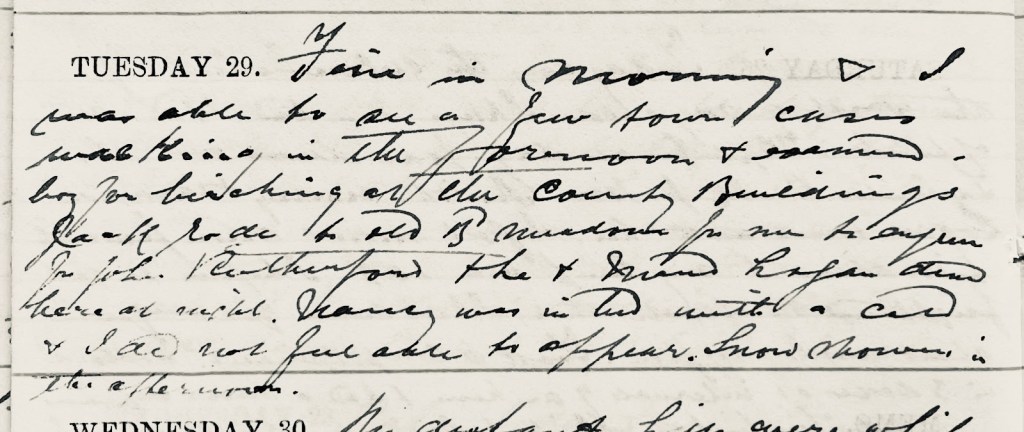 TUESDAY 29. Fine in morning & I
was able to see a few town cases
walking in the forenoon & examined
boy for birching at the County Buildings
Jack rode to old B meadow for me to enquire
for John Rutherford & he & Logan dined
here at night. Nancy was in bed with a cold
& I did not feel able to appear. Snow showers in
the afternoon.
WEDNESDAY 30. The distant hills were